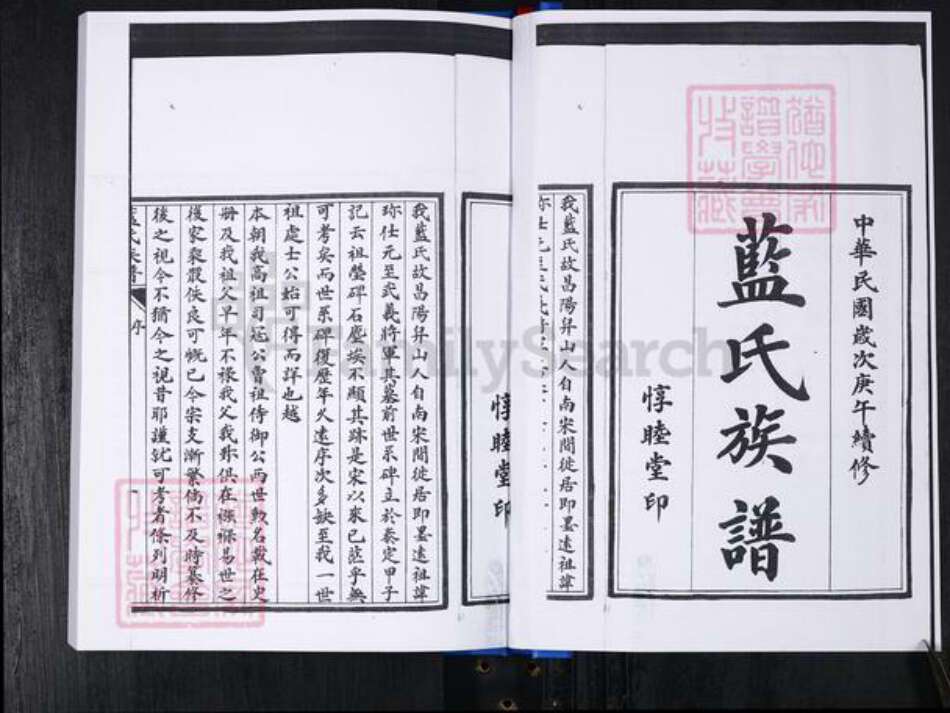 中華民國歲次庚午續修
藍氏族譜
惇睦堂印
猶他家譜學會收藏
我藍氏故昌陽昇山人自南宋間徙居即墨遠祖諱
惇睦堂印
我藍氏故昌陽昇山人自南宋間徙居即墨遠祖諱
珎仕元至武義將軍其墓前世系碑立於泰定甲子
記云祖塋碑石塵埃不顯其跡是宋以來已茫乎無
可考矣而世系碑復歷年久遠序次多缺至我一世
祖處士公始可得而詳也越
本朝我高祖司冦公曾祖侍御公兩世勲名載在史
册及我祖父早年不祿我父我叔俱在襁褓易世之
後家乘散佚良可慨已今宗支漸繁倘不及時纂修
後之視今不猶今之視昔耶謹就可考者條列明析
藍氏族譜 序 一
FamilySearch